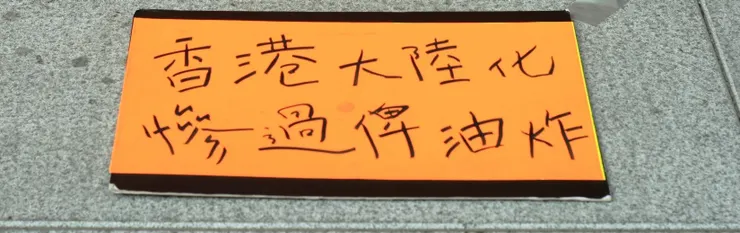 香港大陸化
慘過俾油炸